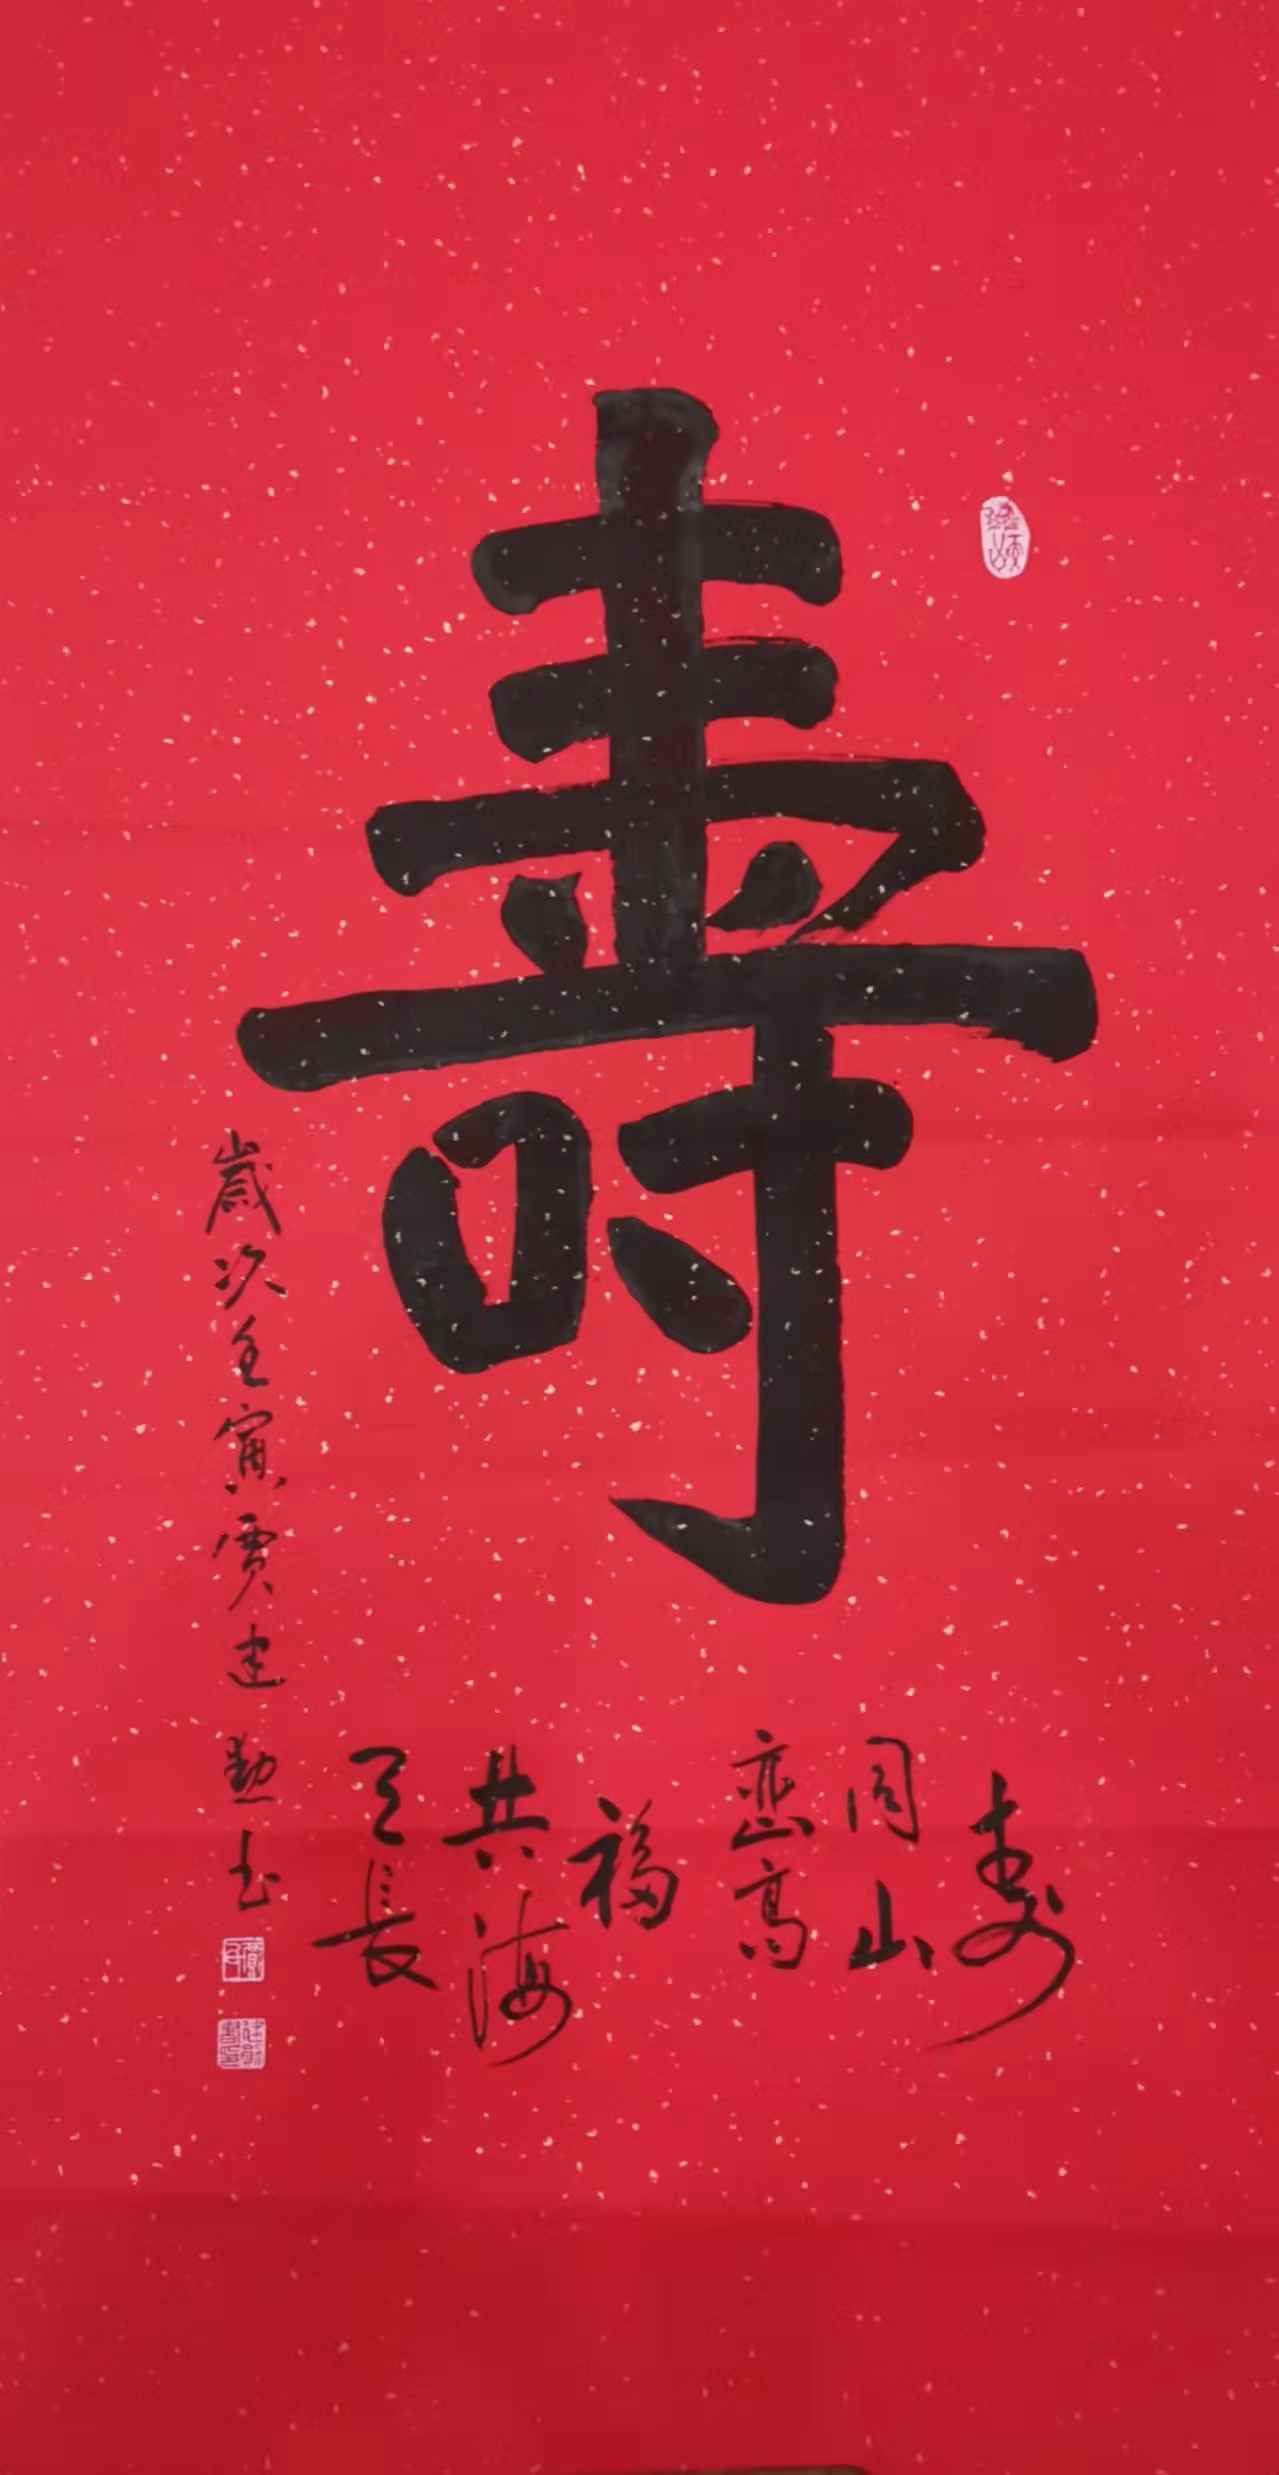 壽
寿
同山
峦高
福
共海
天長
歲次壬寅賈建勲书